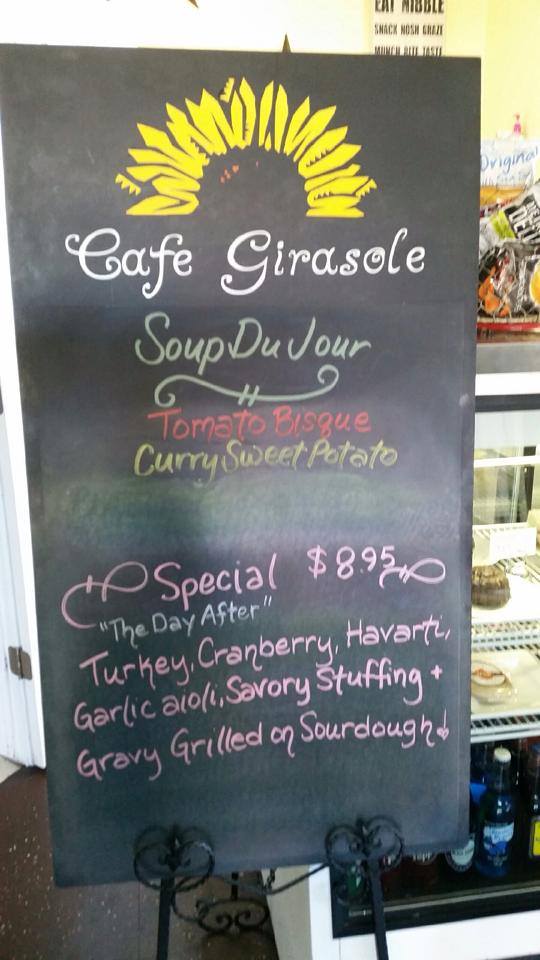 EAT NIBBLE
SNACK NOSH GRAZE
MUNCH BITE TASTE
Original
Cafe Girasole
Soup Du Jour
Tomato Bisque
Curry Sweet Potato
Special $8.95
"The Day After"
Turkey, Cranberry, Havarti,
Garlic aioli, Savory Stuffing +
Gravy Grilled on Sourdough